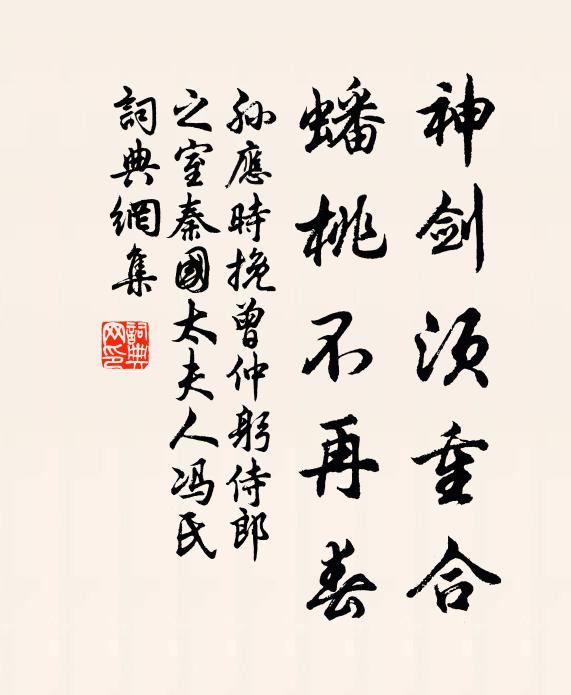 神剑须重合
蟠桃不再春
孙應時挽曾仲躬侍郎
之室秦國太夫人冯氏
詞典網集
詞典网印